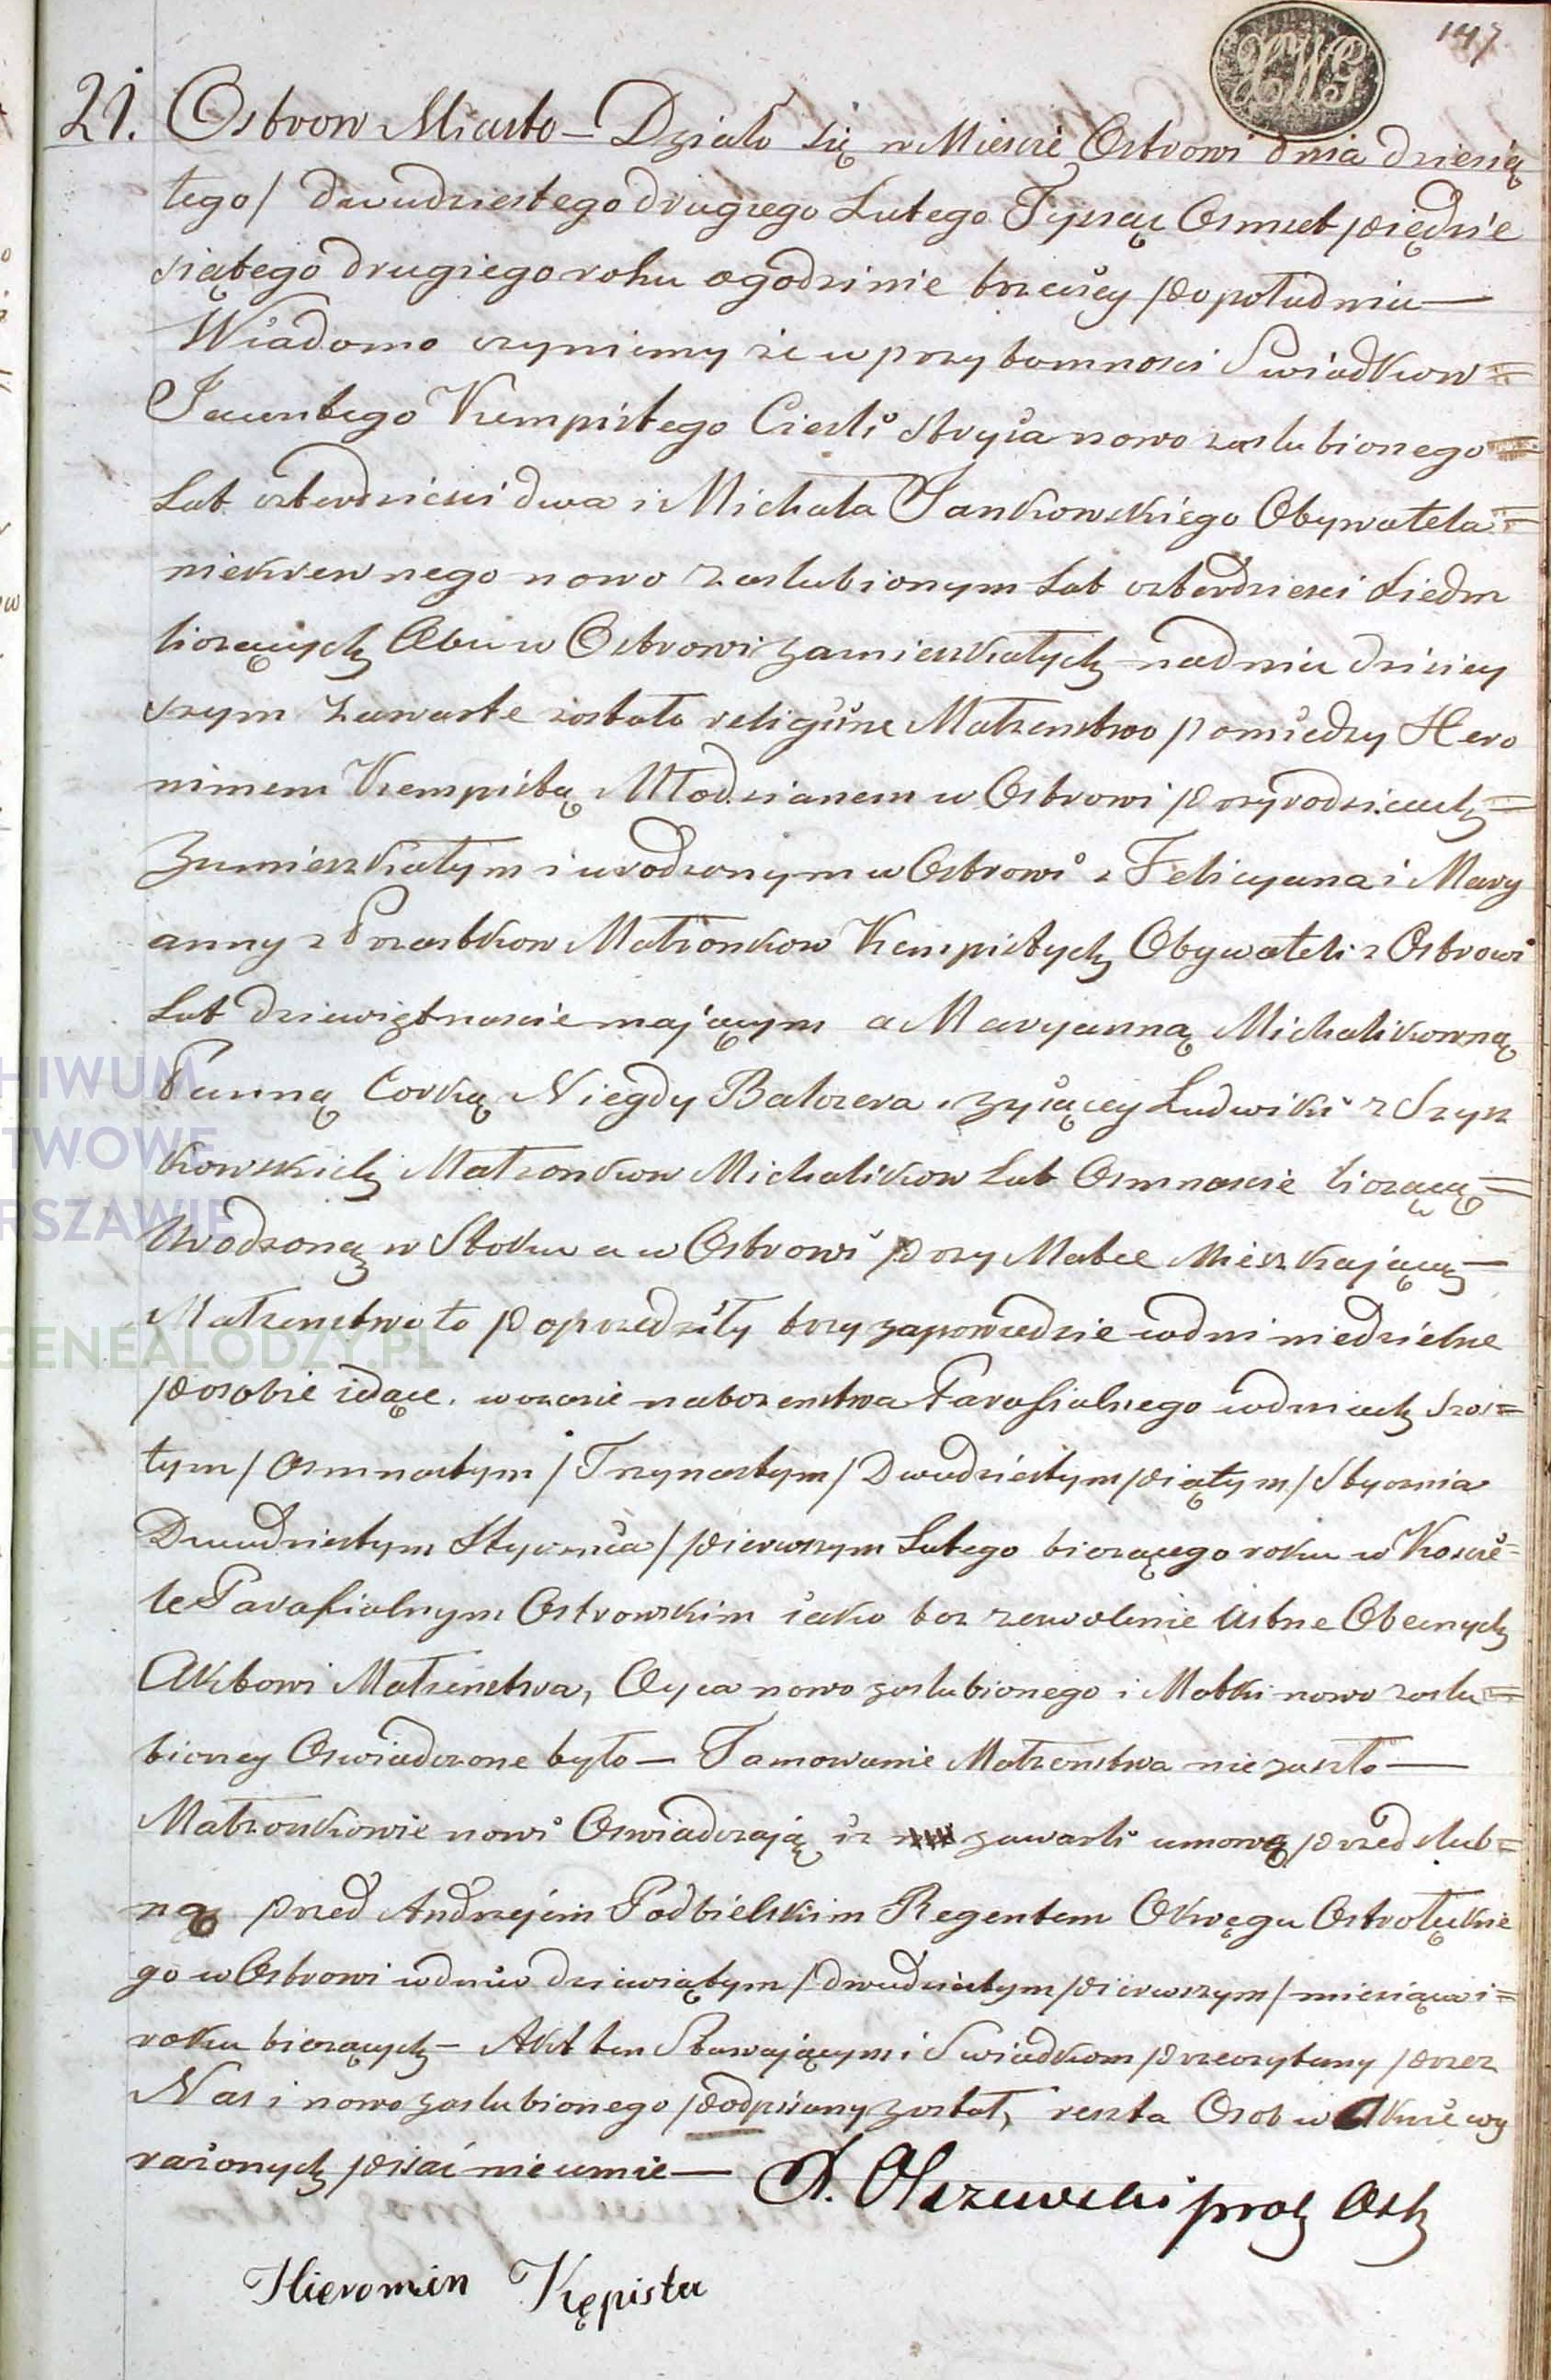 147.
HWG
21. Ostrow Miasto — Działo się w Miescie Ostrowi dnia dziesią
tego / dwudziestego drugiego Lutego Tysiąc Osmset piędzie
siątego drugiego roku o godzinie trzeciey po południu —
Wiadomo czyniemy że w przytomnosci Swiadkow =
Jacentego Kempistego Ciesli stryia nowo zaslubionego =
Lat czterdziesci dwa i Michała Jankowskiego Obywatela =
niekrewnego nowo zaslubionym Lat czterdziesci siedm
liczących Obu w Ostrowi zamieszkałych na dniu dzisiey
szym zawarte zostało religiine Małzenstwo pomiedzy Hero
nimem Kempistą Młodzianem w Ostrowi przy rodzicach =
zamieszkałym i urodzonym w Ostrowi z Felicyana i Mary
anny z Prastkow Małzonkow Kempistych Obywateli z Ostrowi
Lat dziewiętnascie mającym a Maryanną Michalikowną
Panną Corką Niegdy Balcera i zyiącey Ludwiki z Szys
kowskich Małzonkow Michalikow Lat Osmnascie liczącą =
Urodzoną w Stoku a w Ostrowi przy Matce Mieszkającą —
Małzenstwo to poprzedziły trzy zapowiedzie w dni niedzielne
po sobie idące. w czasie nabozenstwa Parafialnego w dniach szos =
tym / osmnastym / Trzynastym / Dwudziestym piątym / Stycznia
Dwudziestym Stycznia / pierwszym Lutego biezącego roku w Koscie =
le Parafialnym Ostrowskim iako tez zezwolenie Ustne Obecnych
Aktowi Małzenstwa, Oyca nowo zaslubionego i Matki nowo zaslu =
bioney Oswiadczone było — Tamowanie Małzenstwa nie zaszło —
Małzonkowie nowi Oswiadczają iz zawarli umowę przedslub =
ną przed Andrzejem Podbielskim Regentem Okręgu Ostrołęckie
go w Ostrowi w dniu dziewiątym / dwudziestym pierwszym / miesiąca i =
roku biezących — Akt ten Stawającym i Swiadkom przeczytany przez
Nas i nowo zaslubionego podpisany został, reszta Osob w Akcie wy
rażonych pisać nie umie —
Olszewski prob Ost
Hieronim Kępista
HIWUM
TWOWE
RSZAWIE
GENEALODZY.PL